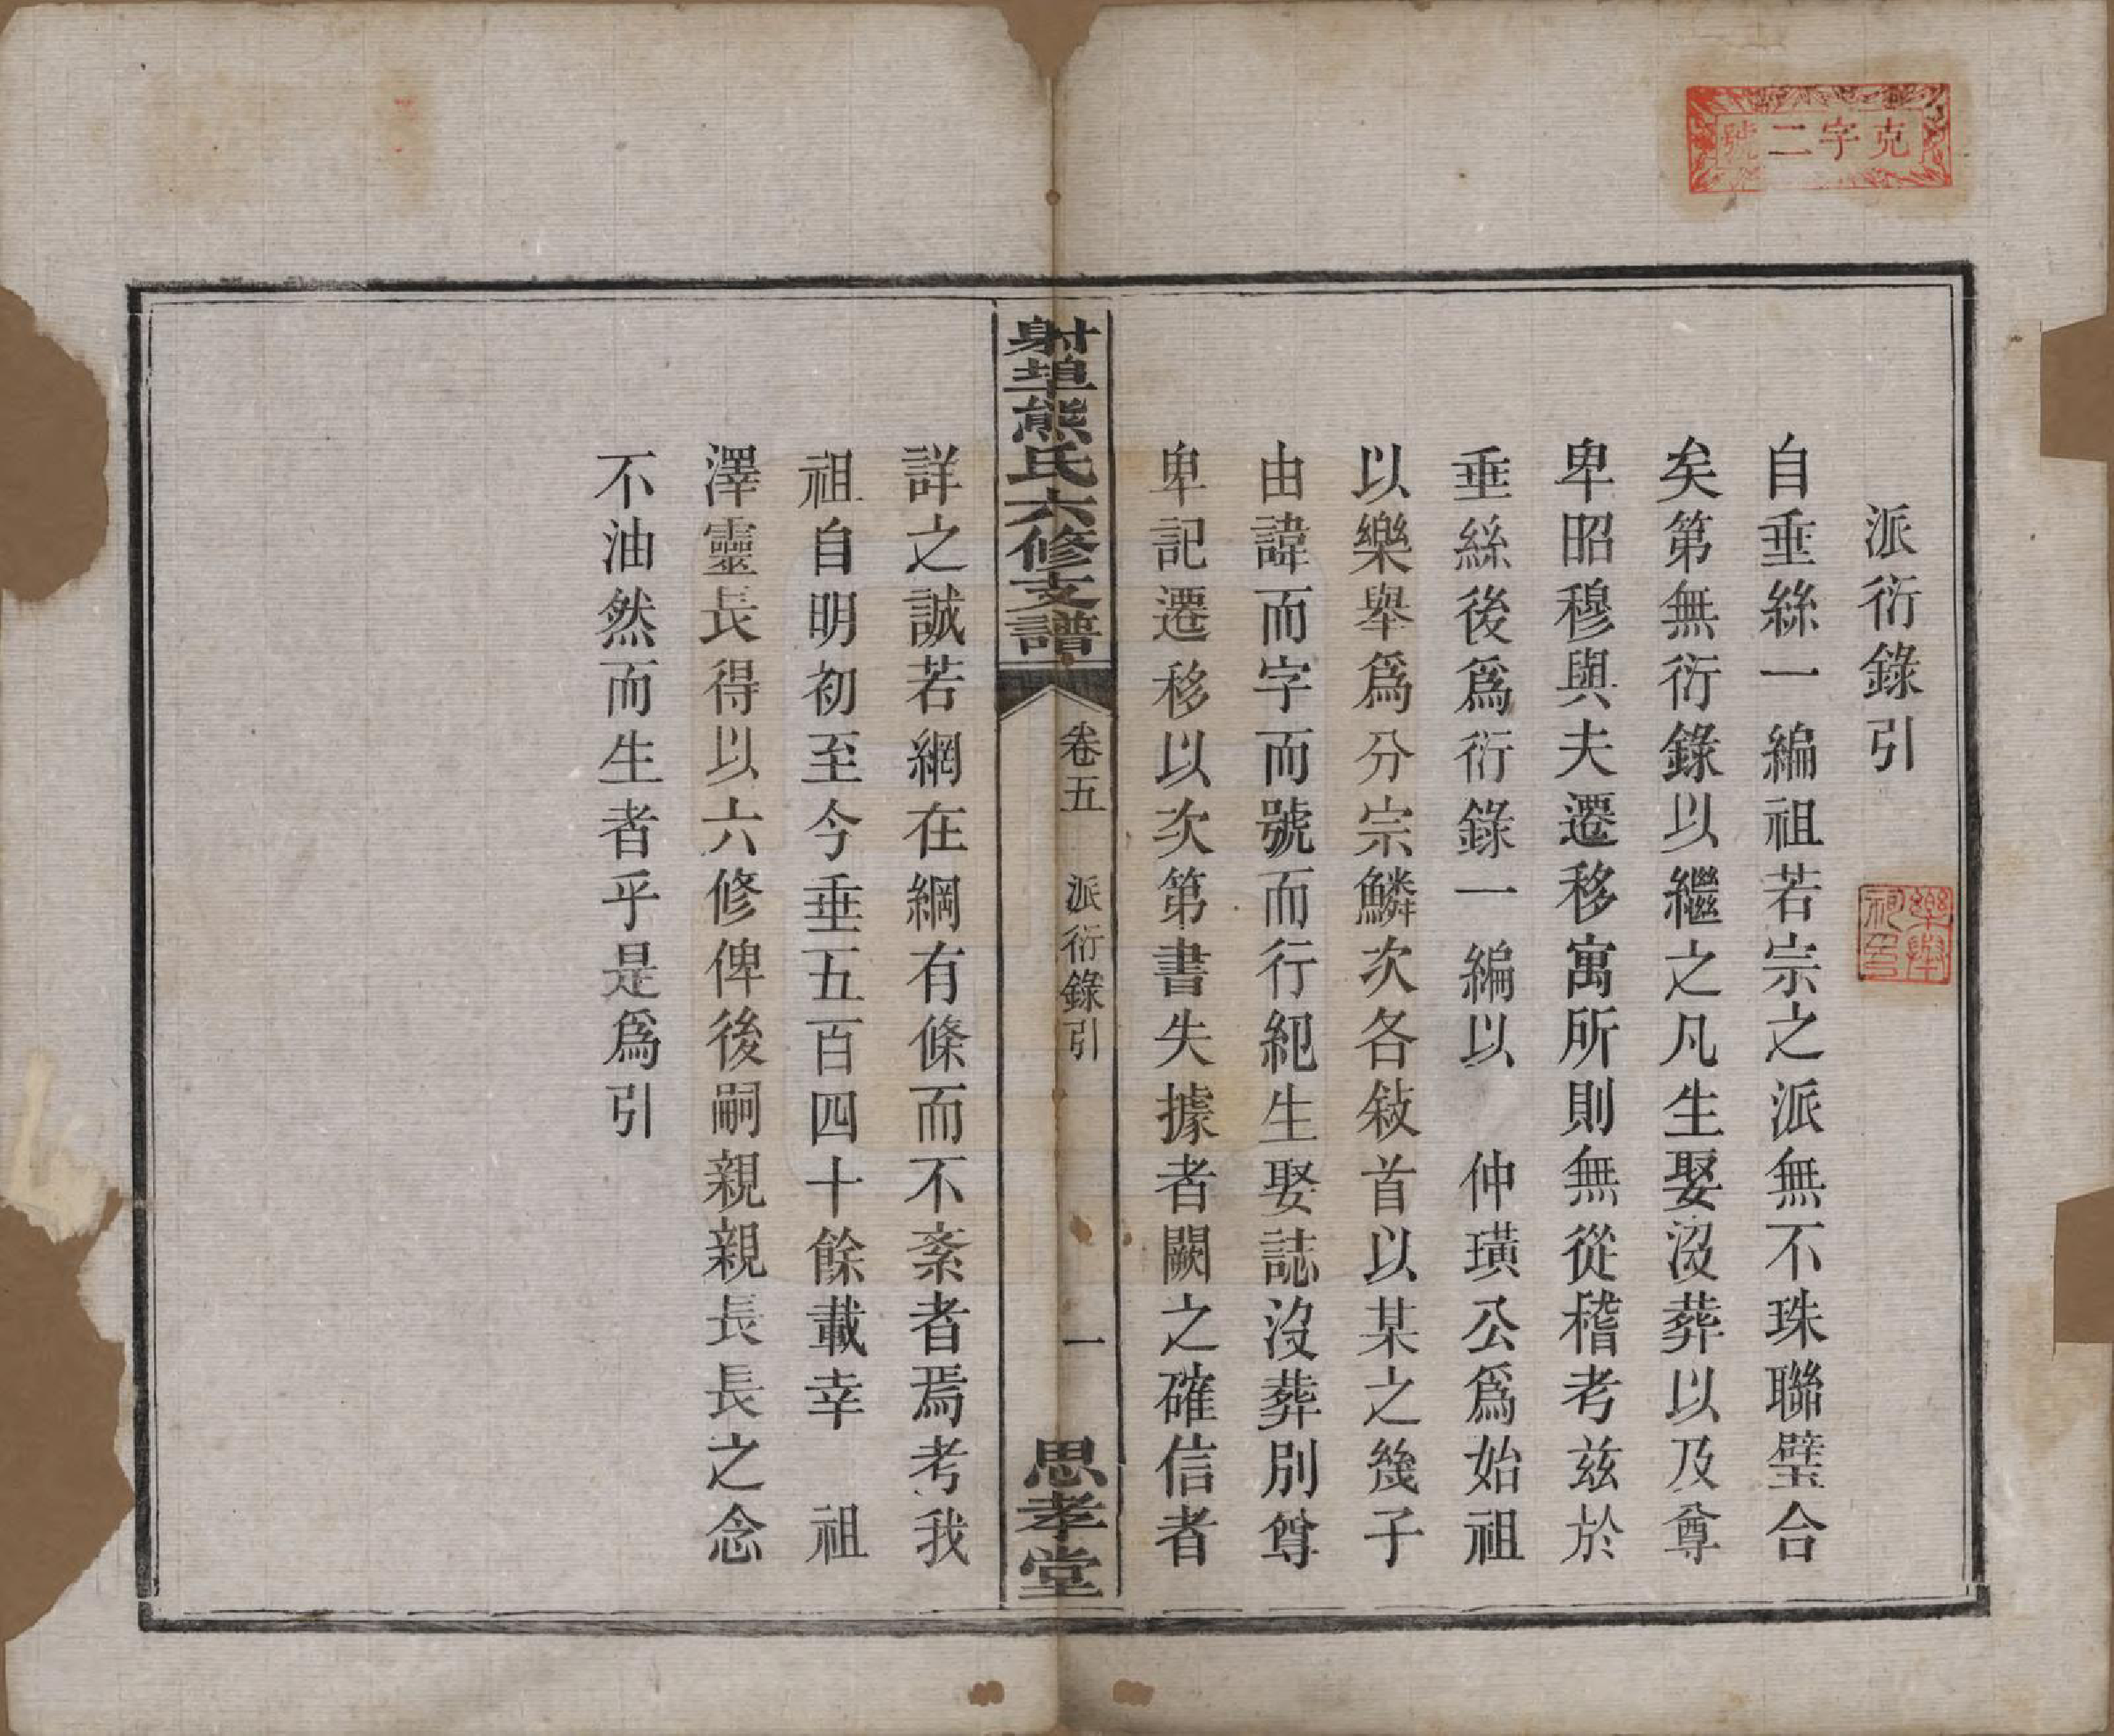 克字二號
派衍錄引
自垂絲一編祖若宗之派無不珠聯璧合
矣第無衍錄以繼之凡生娶沒葬以及尊
卑昭穆與夫遷移寓所則無從稽考兹於
垂絲後爲衍錄一編以　仲璜公爲始祖
以樂舉爲分宗鱗次各敍首以某之幾子
由諱而字而號而行紀生娶誌沒葬別尊
卑記遷移以次第書失據者闕之確信者
射埠熊氏六修支譜
卷五　派衍錄引　一
思孝堂
詳之誠若網在綱有條而不紊者焉考我
祖自明初至今垂五百四十餘載幸　祖
澤靈長得以六修俾後嗣親親長長之念
不油然而生者乎是爲引